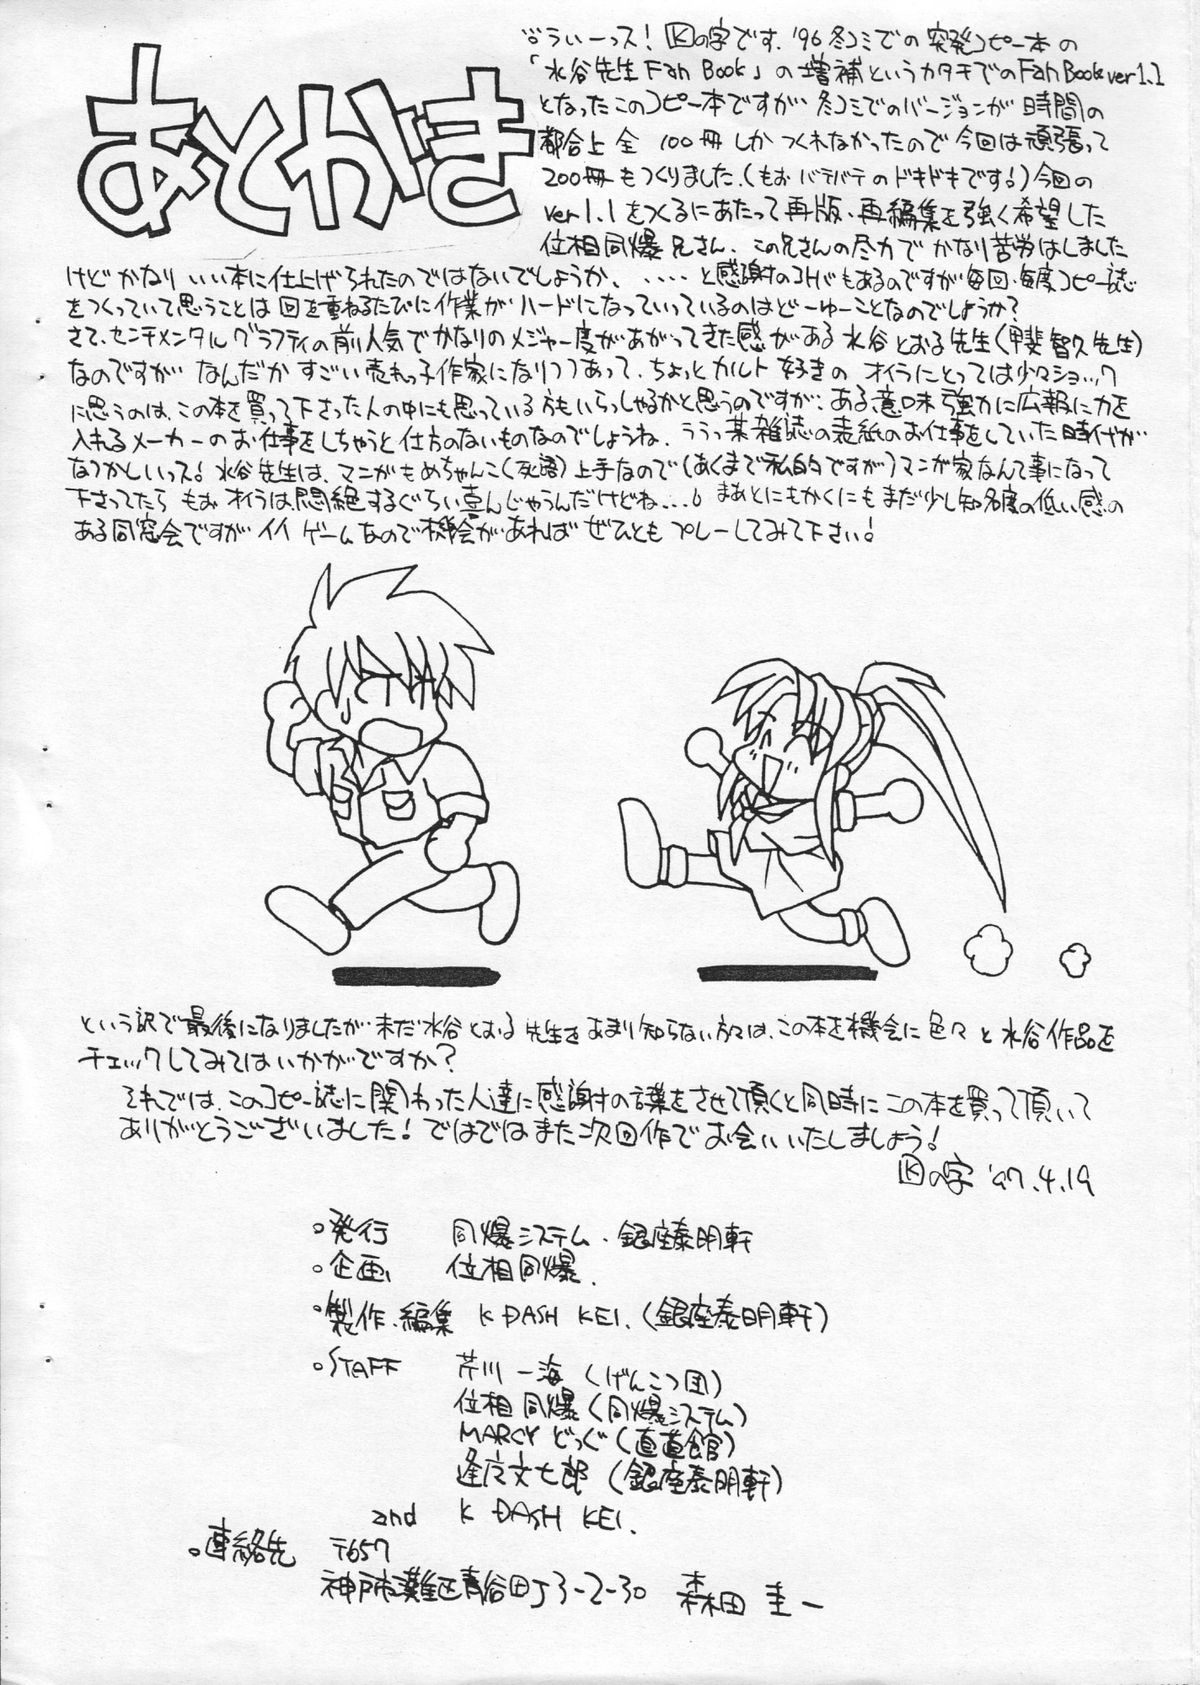 あとがき
うぃーっス! Kの字です。'96冬コミでの突発コピー本の
「水谷先生Fan Book」の増補というカタチでのFan Book ver1.1
となったこのコピー本ですが冬コミでのバージョンが時間の
都合上全100冊しかつくれなかったので今回は頑張って
200冊もつくりました。(もおバテバテのドキドキです!)今回の
ver1.1をつくるにあたって再版・再編集を強く希望した
位相同爆兄さん、この兄さんの尽力でかなり苦労はしました
けどかなりいい本に仕上げられたのではないでしょうか、・・・・と感謝のコトバもあるのですが毎回・毎度コピー誌
をつくっていて思うことは回を重ねるたびに作業がハードになっていっているのはどーゆーことなのでしょうか?
さて、センチメンタルグラフティの前人気でかなりのメジャー度があがってきた感がある水谷とおる先生(甲斐智久先生)
なのですがなんだかすごい売れっ子作家になりつつあって、ちょっとカルト好きのオイラにとっては少々ショック
に思うのは、この本を買って下さった人の中にも思っている方もいらっしゃるかと思うのですが、ある意味強力に広報に力を
入れるメーカーのお仕事をしちゃうと仕方のないものなのでしょうね、ううっ某雑誌の表紙のお仕事をしていた時代が
なつかしいっス!水谷先生は、マンガもめちゃんこ(死語)上手なので(あくまで私的ですが)マンガ家なんて事になって
下さってたらもおオイラは悶絶するぐらい喜んじゃうんだけどね...。まあとにもかくにもまだ少し知名度の低い感の
ある同窓会ですがイイゲームなので機会があればぜひともプレーしてみて下さい!
という訳で最後になりましたが未だ水谷とおる先生をあまり知らない方々は、この本を機会に色々と水谷作品を
チェックしてみてはいかがですか?
それでは、このコピー誌に関わった人達に感謝の言葉をさせて頂くと同時にこの本を買って頂いて
ありがとうございました!ではではまた次回作でお会いいたしましょう!
Kの字 '97.4.19
○発行 同爆システム・銀座泰明軒
○企画 位相同爆
○製作・編集 K DASH KEI.(銀座泰明軒)
○STAFF 芹川一海(げんこつ団)
位相同爆(同爆システム)
MARCY どっぐ(直道館)
逢広文七郎(銀座泰明軒)
and K DASH KEI.
○連絡先 〒657
神戸市灘区青谷町3-2-30 森田圭一